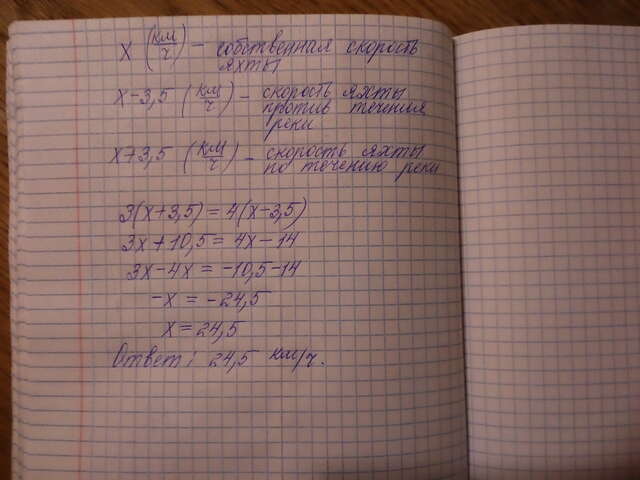 x (км/ч) – собственная скорость
яхты
x-3,5 (км/ч) – скорость яхты
против течения
реки
x+3,5 (км/ч) – скорость яхты
по течению реки
3(x+3,5)=4(x-3,5)
3x+10,5=4x-14
3x-4x=-10,5-14
-x=-24,5
x=24,5
Ответ: 24,5 км/ч.